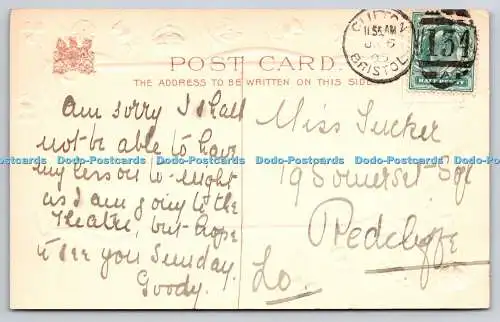 POST CARD.
THE ADDRESS TO BE WRITTEN ON THIS SIDE
CLIFTON
11.55 AM
BRISTOL
154
HALFPENNY
Am sorry I shall
not be able to have
my lesson to-night
as I am going to the
Theatre, but hope
to see you Sunday.
Goody.
Miss Tucker
19 Somerset Sq
Redcliffe
Lo.
Dodo-Postcards Dodo-Postcards Dodo-Postcards Dodo-Postcards Dodo-Postcards